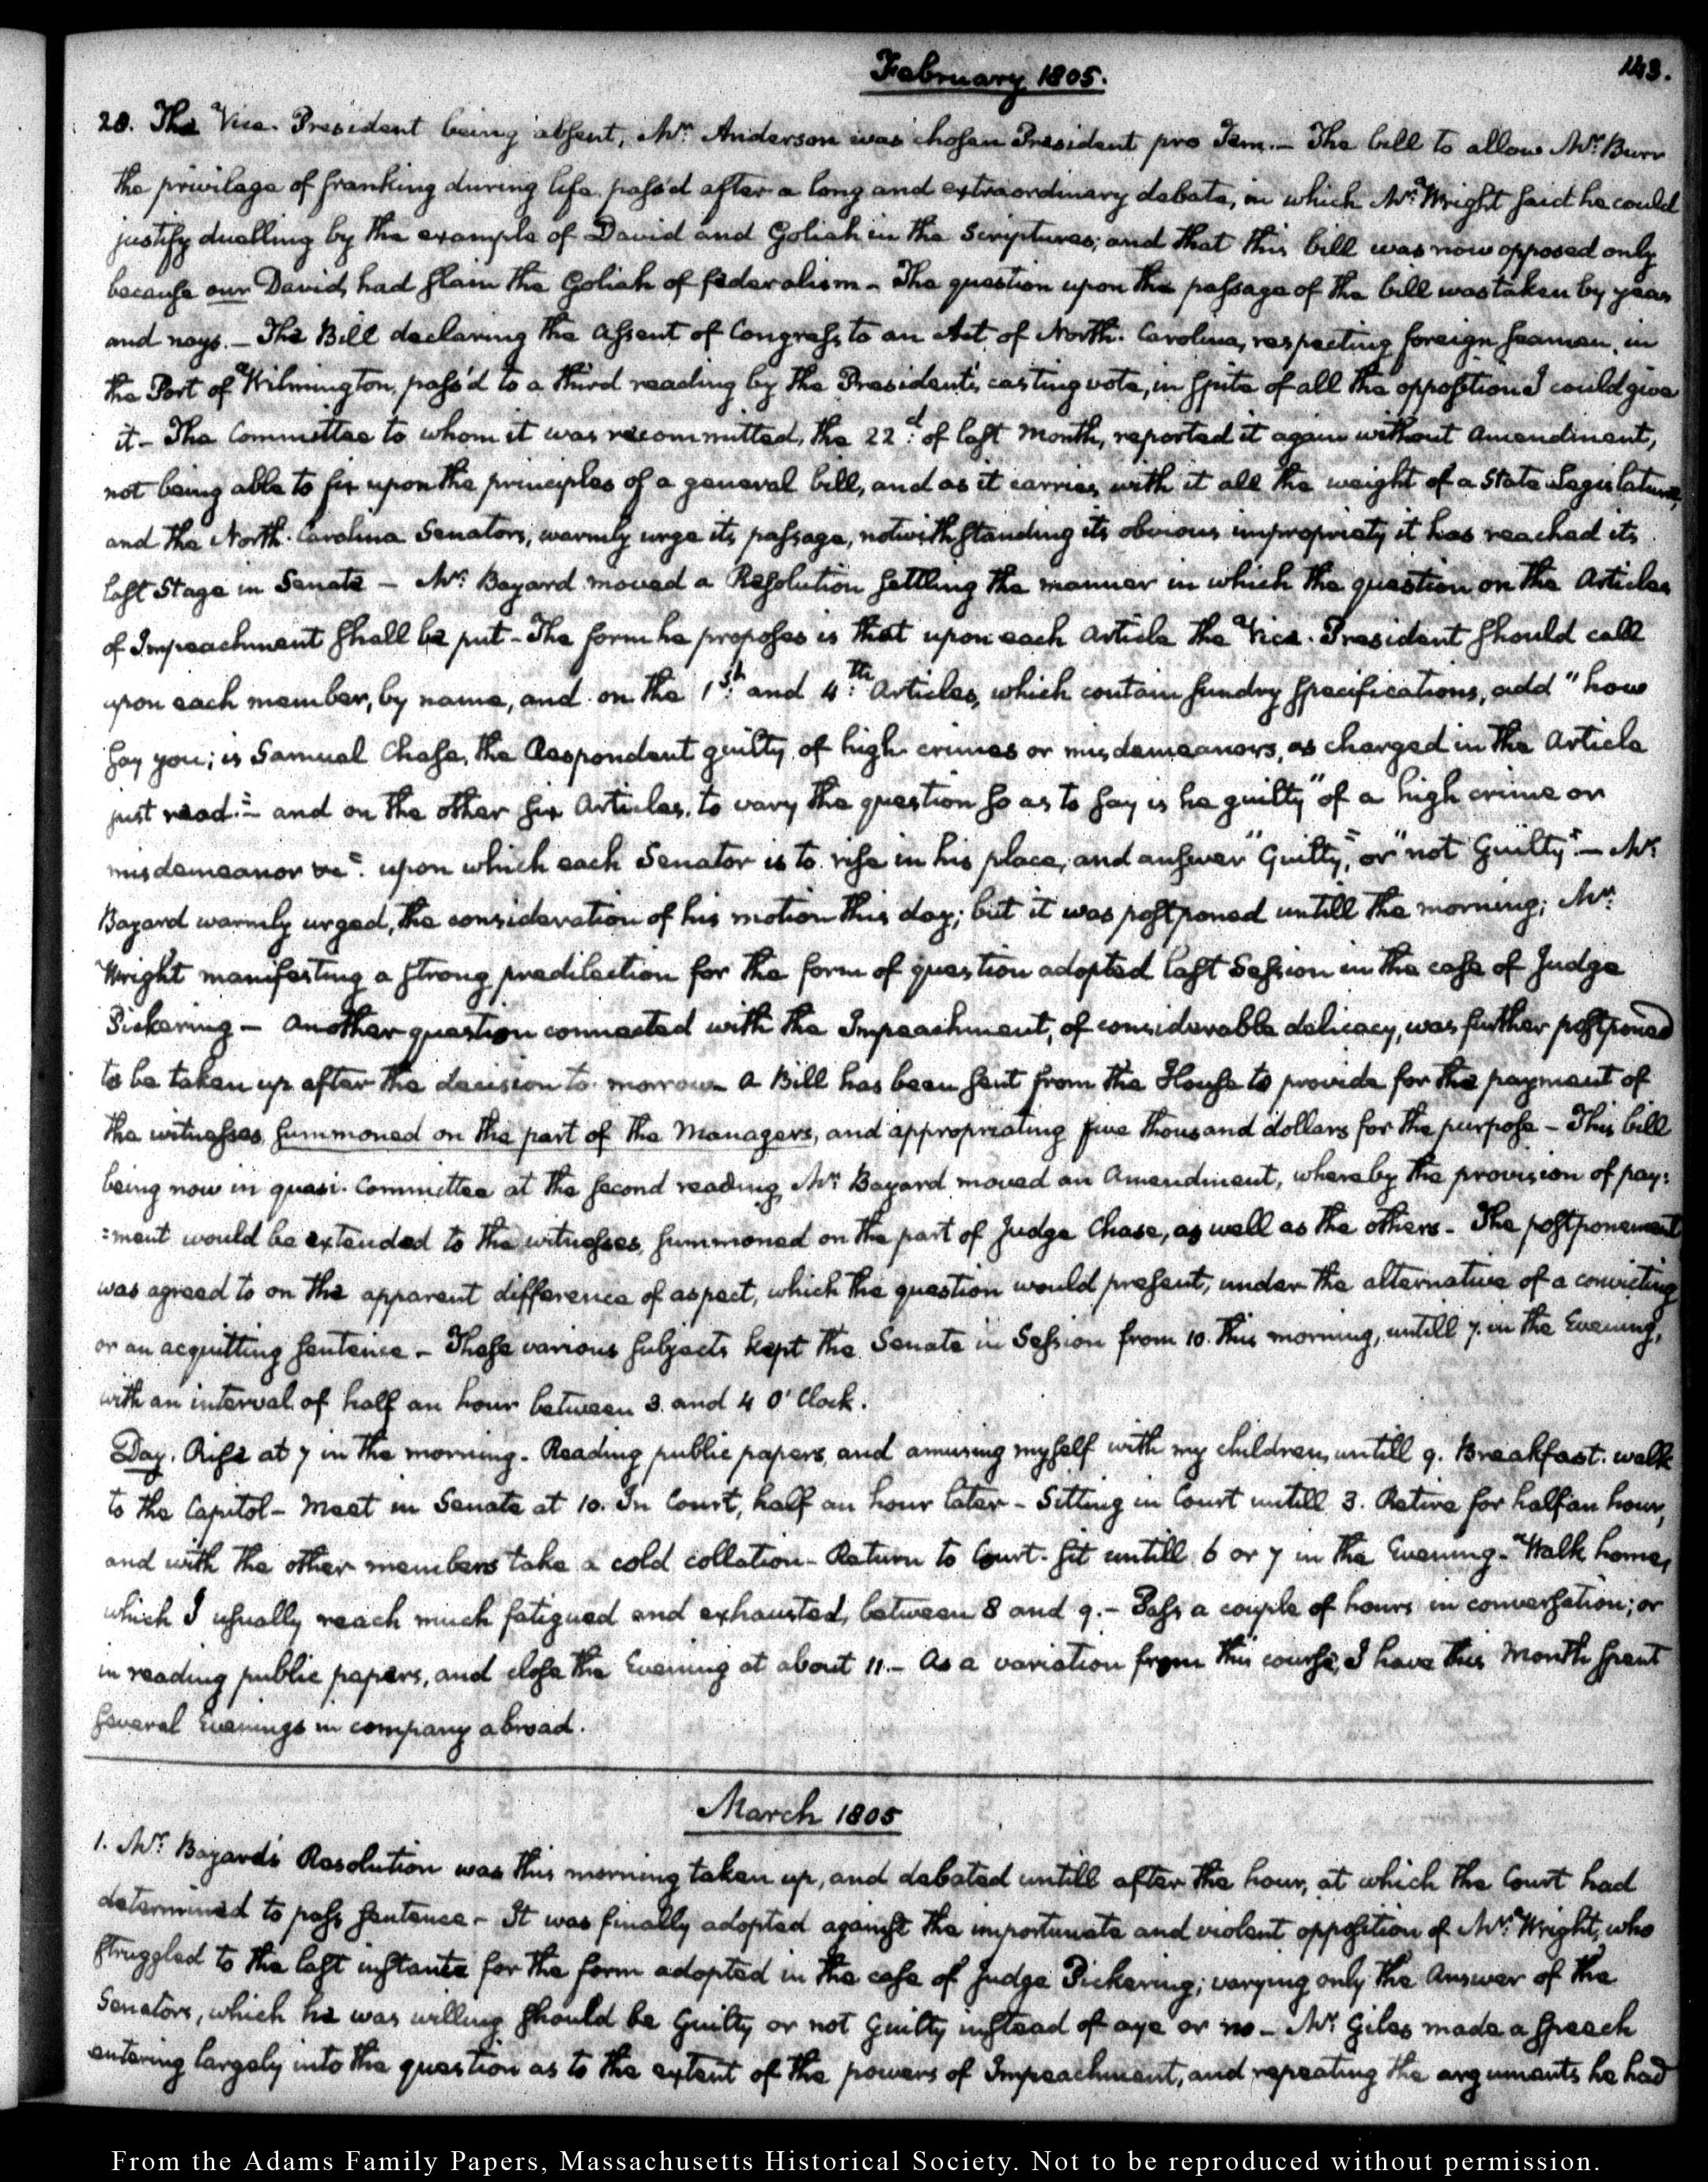 February 1805.
143.
28. The Vice-President being absent, Mr. Anderson was chosen President pro Tem.— The bill to allow Mr. Burr
the privilege of franking during life, pass'd after a long and extraordinary debate, in which Mr. Wright said he could
justify duelling by the example of David and Goliah in the Scriptures; and that this bill was now opposed only
because our David, had slain the Goliah of federalism— The question upon the passage of the bill was taken by yeas
and nays.— The Bill declaring the assent of Congress to an Act of North-Carolina, respecting foreign seamen, in
the Port of Wilmington, pass'd to a third reading by the President's casting vote, in spite of all the opposition I could give
it— The Committee to whom it was recommitted, the 22d. of last month, reported it again without amendment,
not being able to fix upon the principles of a general bill, and as it carries with it all the weight of a State Legislature,
and the North-Carolina Senators, warmly urge its passage, notwithstanding its obvious impropriety it has reached its
last stage in Senate— Mr. Bayard moved a Resolution settling the manner in which the question on the Articles
of Impeachment shall be put— The form he proposes is that upon each article the Vice-President should call
upon each member, by name, and on the 1st. and 4th. Articles, which contain sundry specifications, add "how
say you; is Samuel Chase, the Respondent guilty of high crimes or misdemeanors, as charged in the Article
just read."— and on the other six Articles, to vary the question so as to say is he guilty "of a high crime or
misdemeanor &c". upon which each Senator is to rise in his place, and answer "Guilty," or "not Guilty"— Mr.
Bayard warmly urged, the consideration of his motion this day; but it was postponed untill the morning; Mr.
Wright manifesting a strong predilection for the form of question adopted last Session in the case of Judge
Pickering— Another question connected with the Impeachment, of considerable delicacy, was further postponed
to be taken up after the decision to-morrow— A Bill has been sent from the House to provide for the payment of
the witnesses, summoned on the part of the Managers, and appropriating five thousand dollars for the purpose— This bill
being now in quasi-Committee at the second reading, Mr. Bayard moved an Amendment, whereby the provision of pay:
:ment would be extended to the witnesses, summoned on the part of Judge Chase, as well as the others— The postponement
was agreed to on the apparent difference of aspect, which the question would present, under the alternative of a convicting
or an acquitting sentence— These various subjects kept the Senate in Session from 10. this morning, untill 7. in the Evening,
with an interval of half an hour between 3. and 4 O'Clock.
Day. Rise at 7 in the morning. Reading public papers, and amusing myself with my children, untill 9. Breakfast. walk
to the Capitol— Meet in Senate at 10. In Court, half an hour later— Sitting in Court untill 3. Retire for half an hour,
and with the other members take a cold collation— Return to Court. Sit untill 6 or 7 in the Evening— Walk home,
which I usually reach much fatigued and exhausted, between 8 and 9.— Pass a couple of hours in conversation; or
in reading public papers, and close the Evening at about 11.— As a variation from this course, I have this Month spent
several Evenings in company abroad.
March 1805
1. Mr. Bayard's Resolution was this morning taken up, and debated untill after the hour, at which the Court had
determined to pass sentence— It was finally adopted against the importunate and violent opposition of Mr. Wright, who
struggled to the last instante for the form adopted in the case of Judge Pickering; varying only the Answer of the
Senators, which he was willing should be Guilty or not Guilty instead of aye or no— Mr. Giles made a speech
entering largely into the question as to the extent of the powers of Impeachment, and repeating the arguments he had
From the Adams Family Papers, Massachusetts Historical Society. Not to be reproduced without permission.